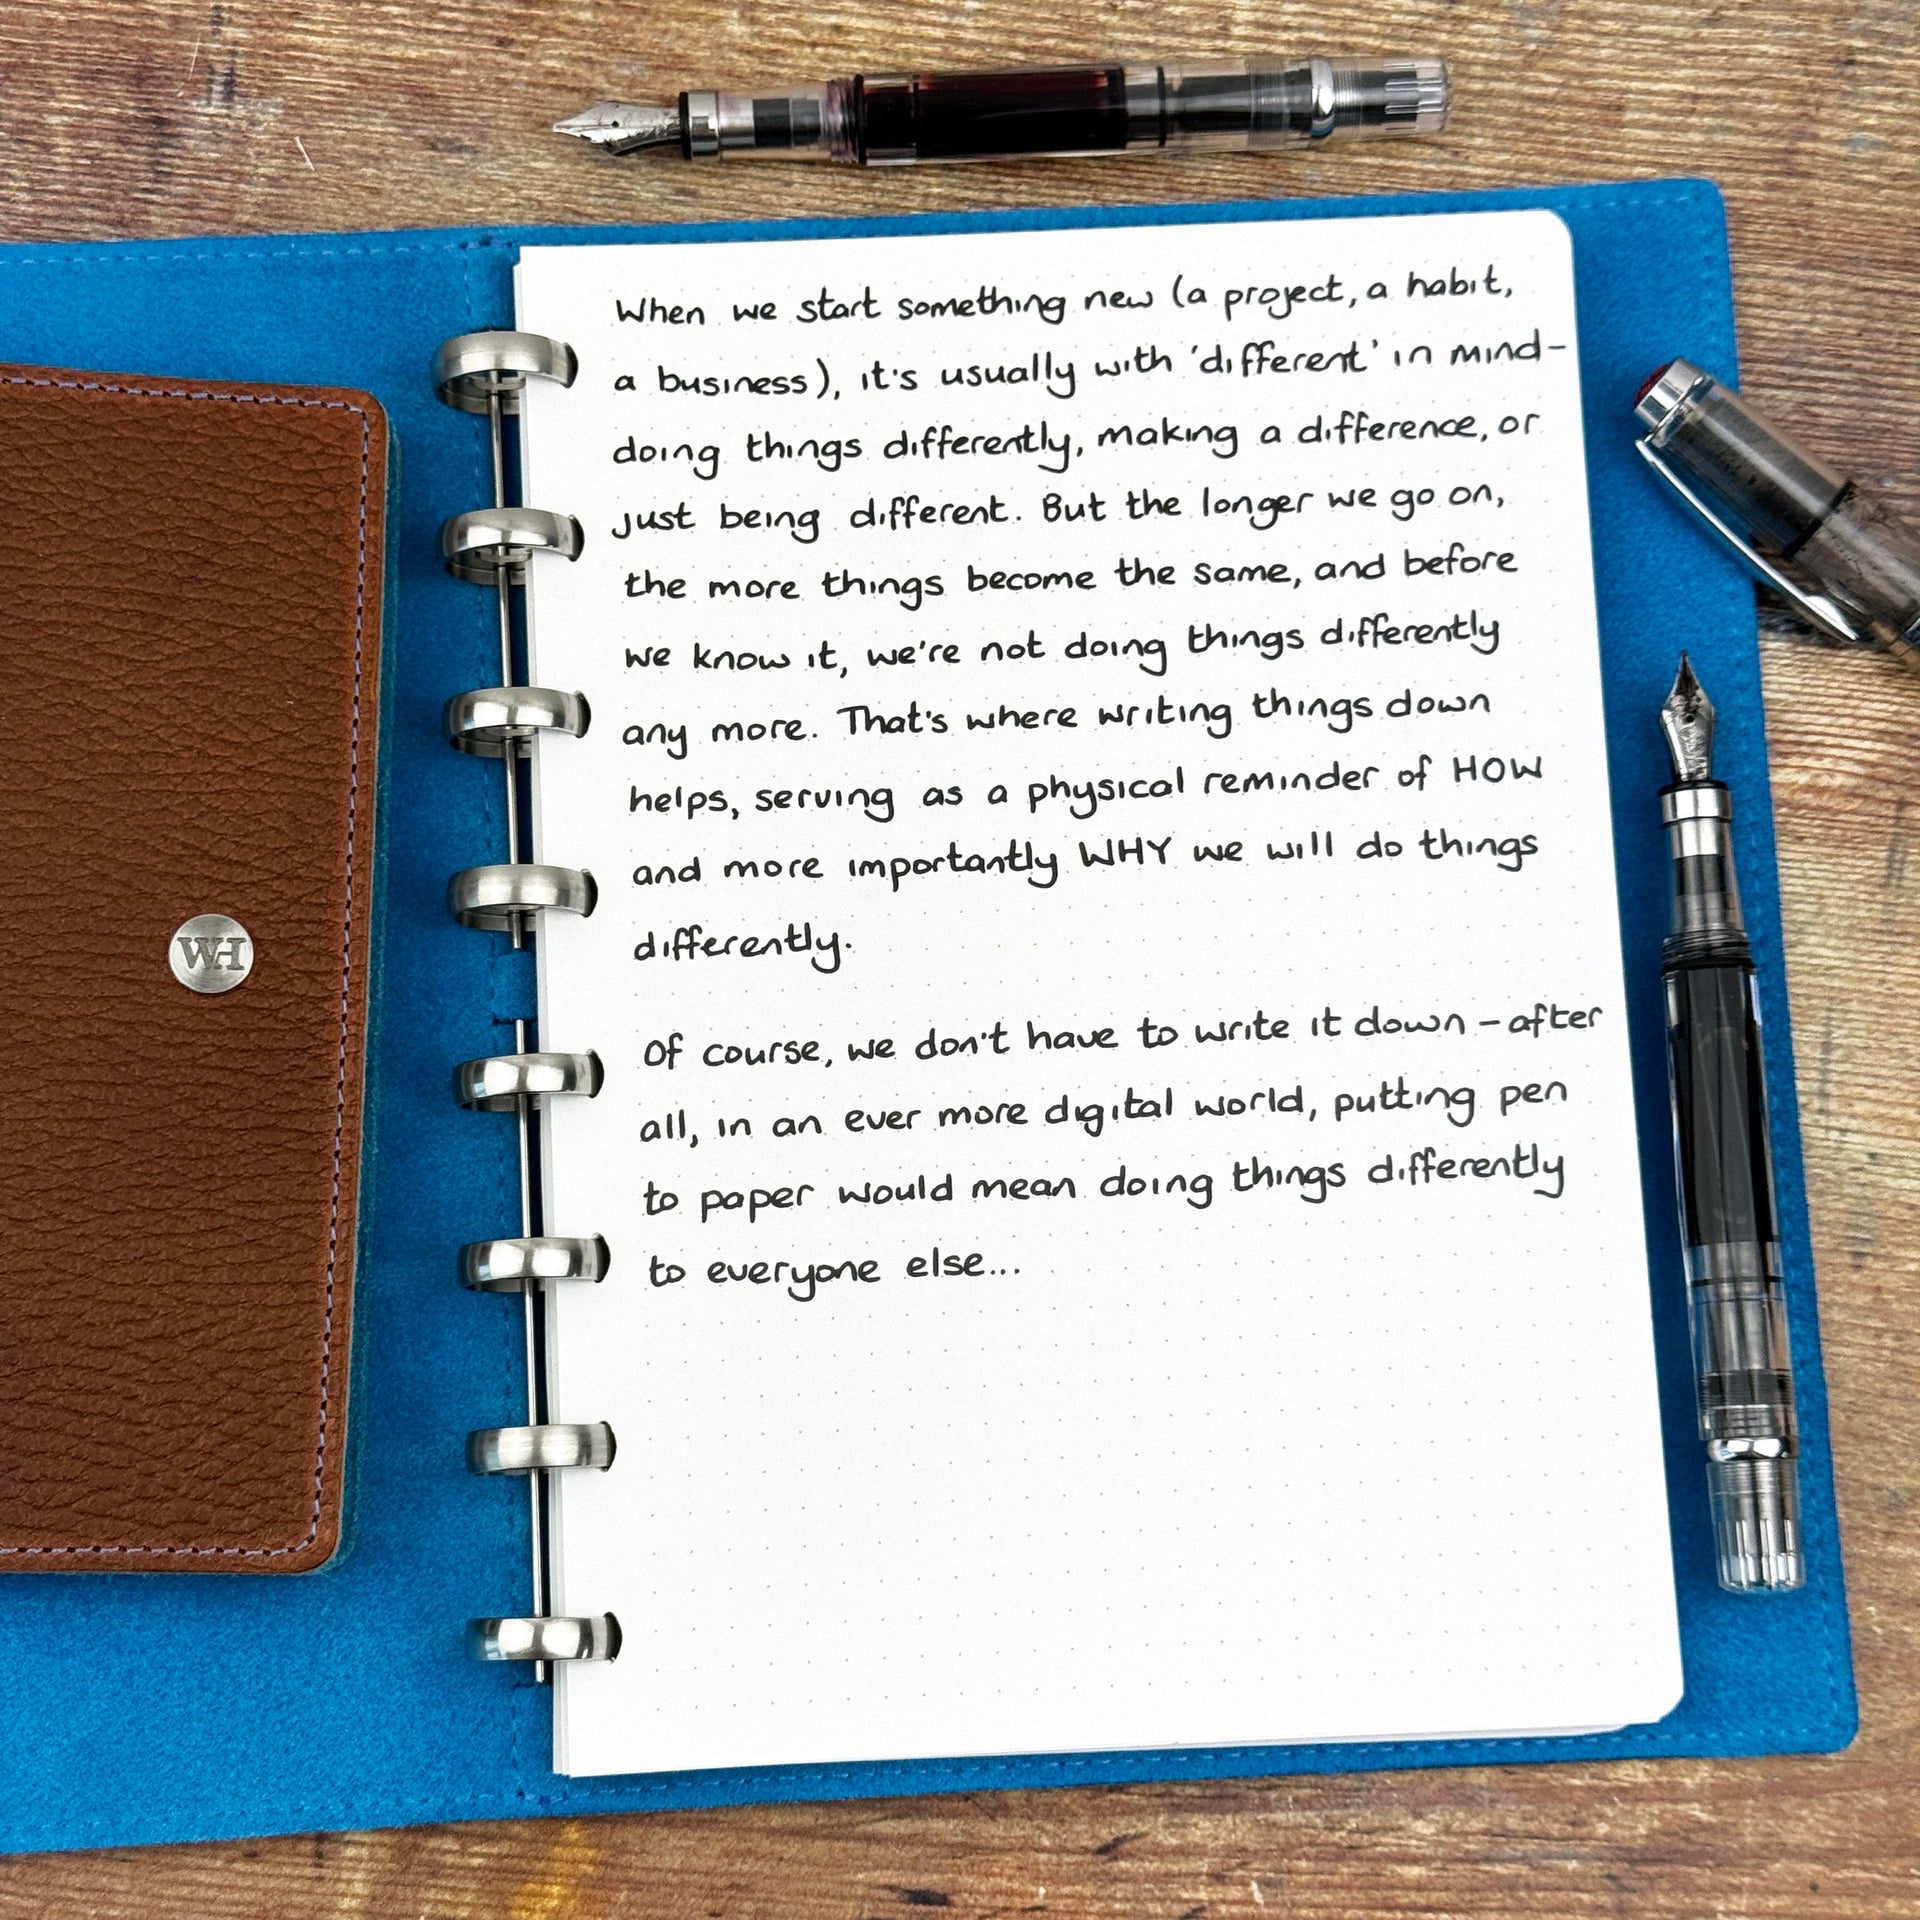 When we start something new (a project, a habit,
a business), it's usually with 'different' in mind-
doing things differently, making a difference, or
just being different. But the longer we go on,
the more things become the same, and before
we know it, we're not doing things differently
any more. That's where writing things down
helps, serving as a physical reminder of HOW
and more importantly WHY we will do things
differently.
Of course, we don't have to write it down - after
all, in an ever more digital world, putting pen
to paper would mean doing things differently
to everyone else...
WH